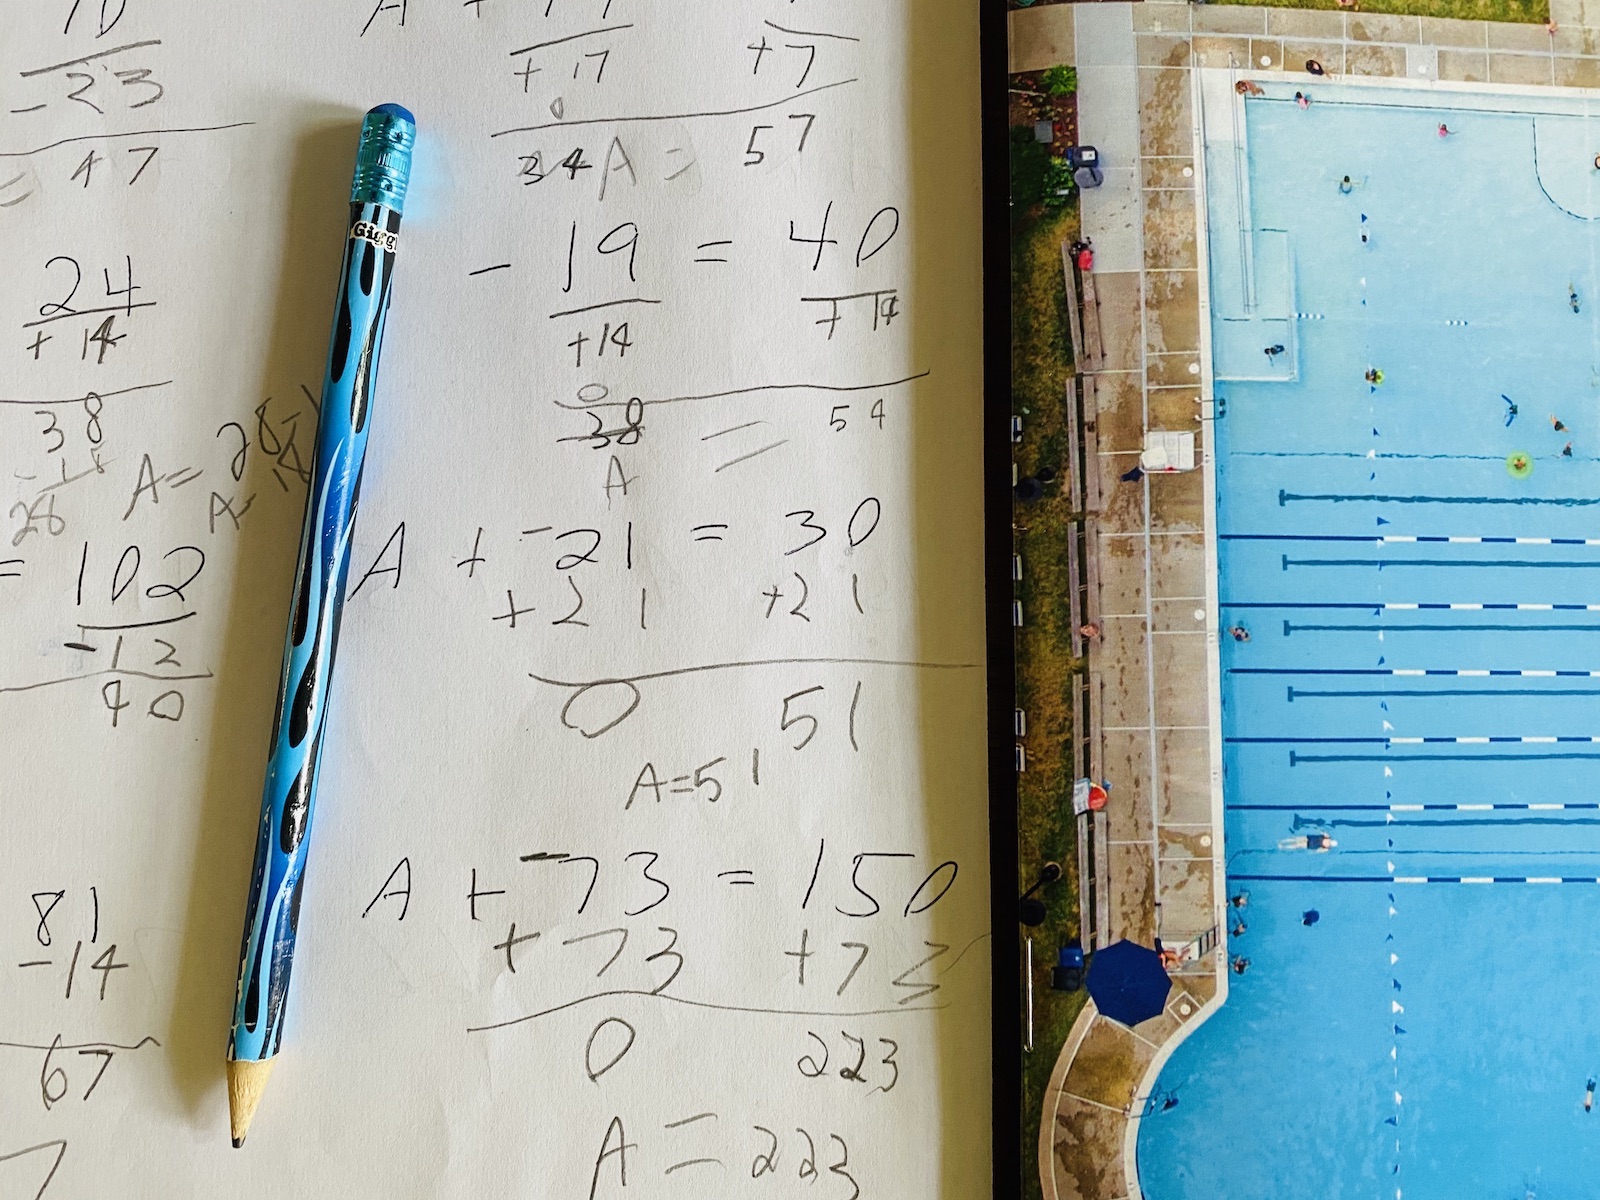 -23
= 47
24
+ 14
38
A=
= 102
-12
40
81
-14
67
7
A +
+ 17
+7
34 A = 57
- 19 = 40
+14
+ 14
38 = 54
A
A + -21 = 30
+21 +21
0 51
A=51
A + -73 = 150
+ 73 +73
0 223
A = 223
Gigg